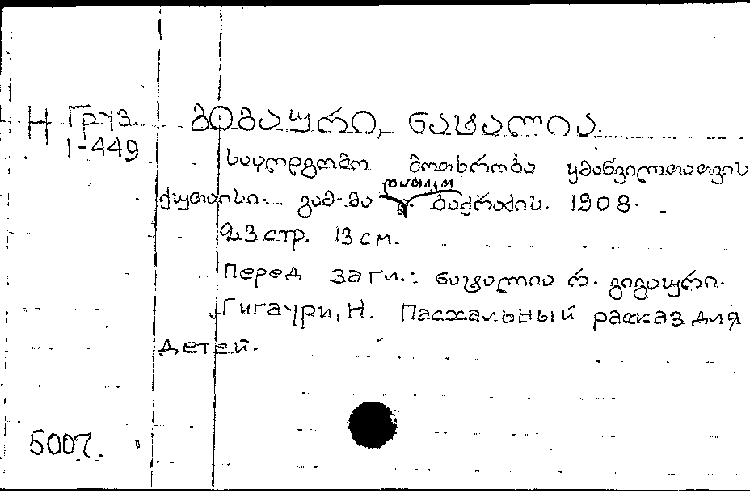 Н Груз. 1-449
გიგაური, ნატალია.
სააღდგომო მოთხრობა ყმაწვილთათვის
ქუთაისი. გამ-მა ბაქრაძის. 1908.
23 стр. 13 см.
Перед загл.: ნატალია რ. გიგაური.
Гигаури, Н. Пасхальный рассказ для
детей.
5007.